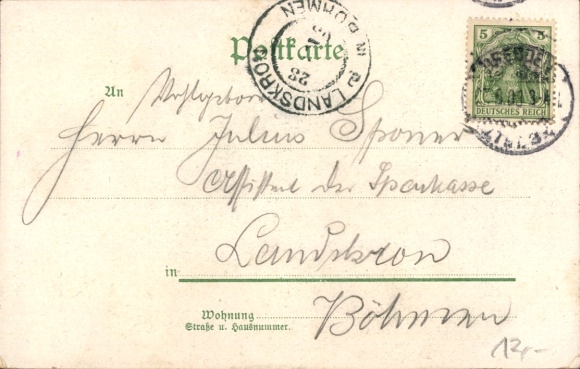 Postkarte
LANDSKRON
IN BÖHMEN
5
DEUTSCHES REICH
An Wohlgeboren
Herrn Julius Sponer
Assistent der Sparkasse
in Landskron
Wohnung
Straße u. Hausnummer.
Böhmen
12,-